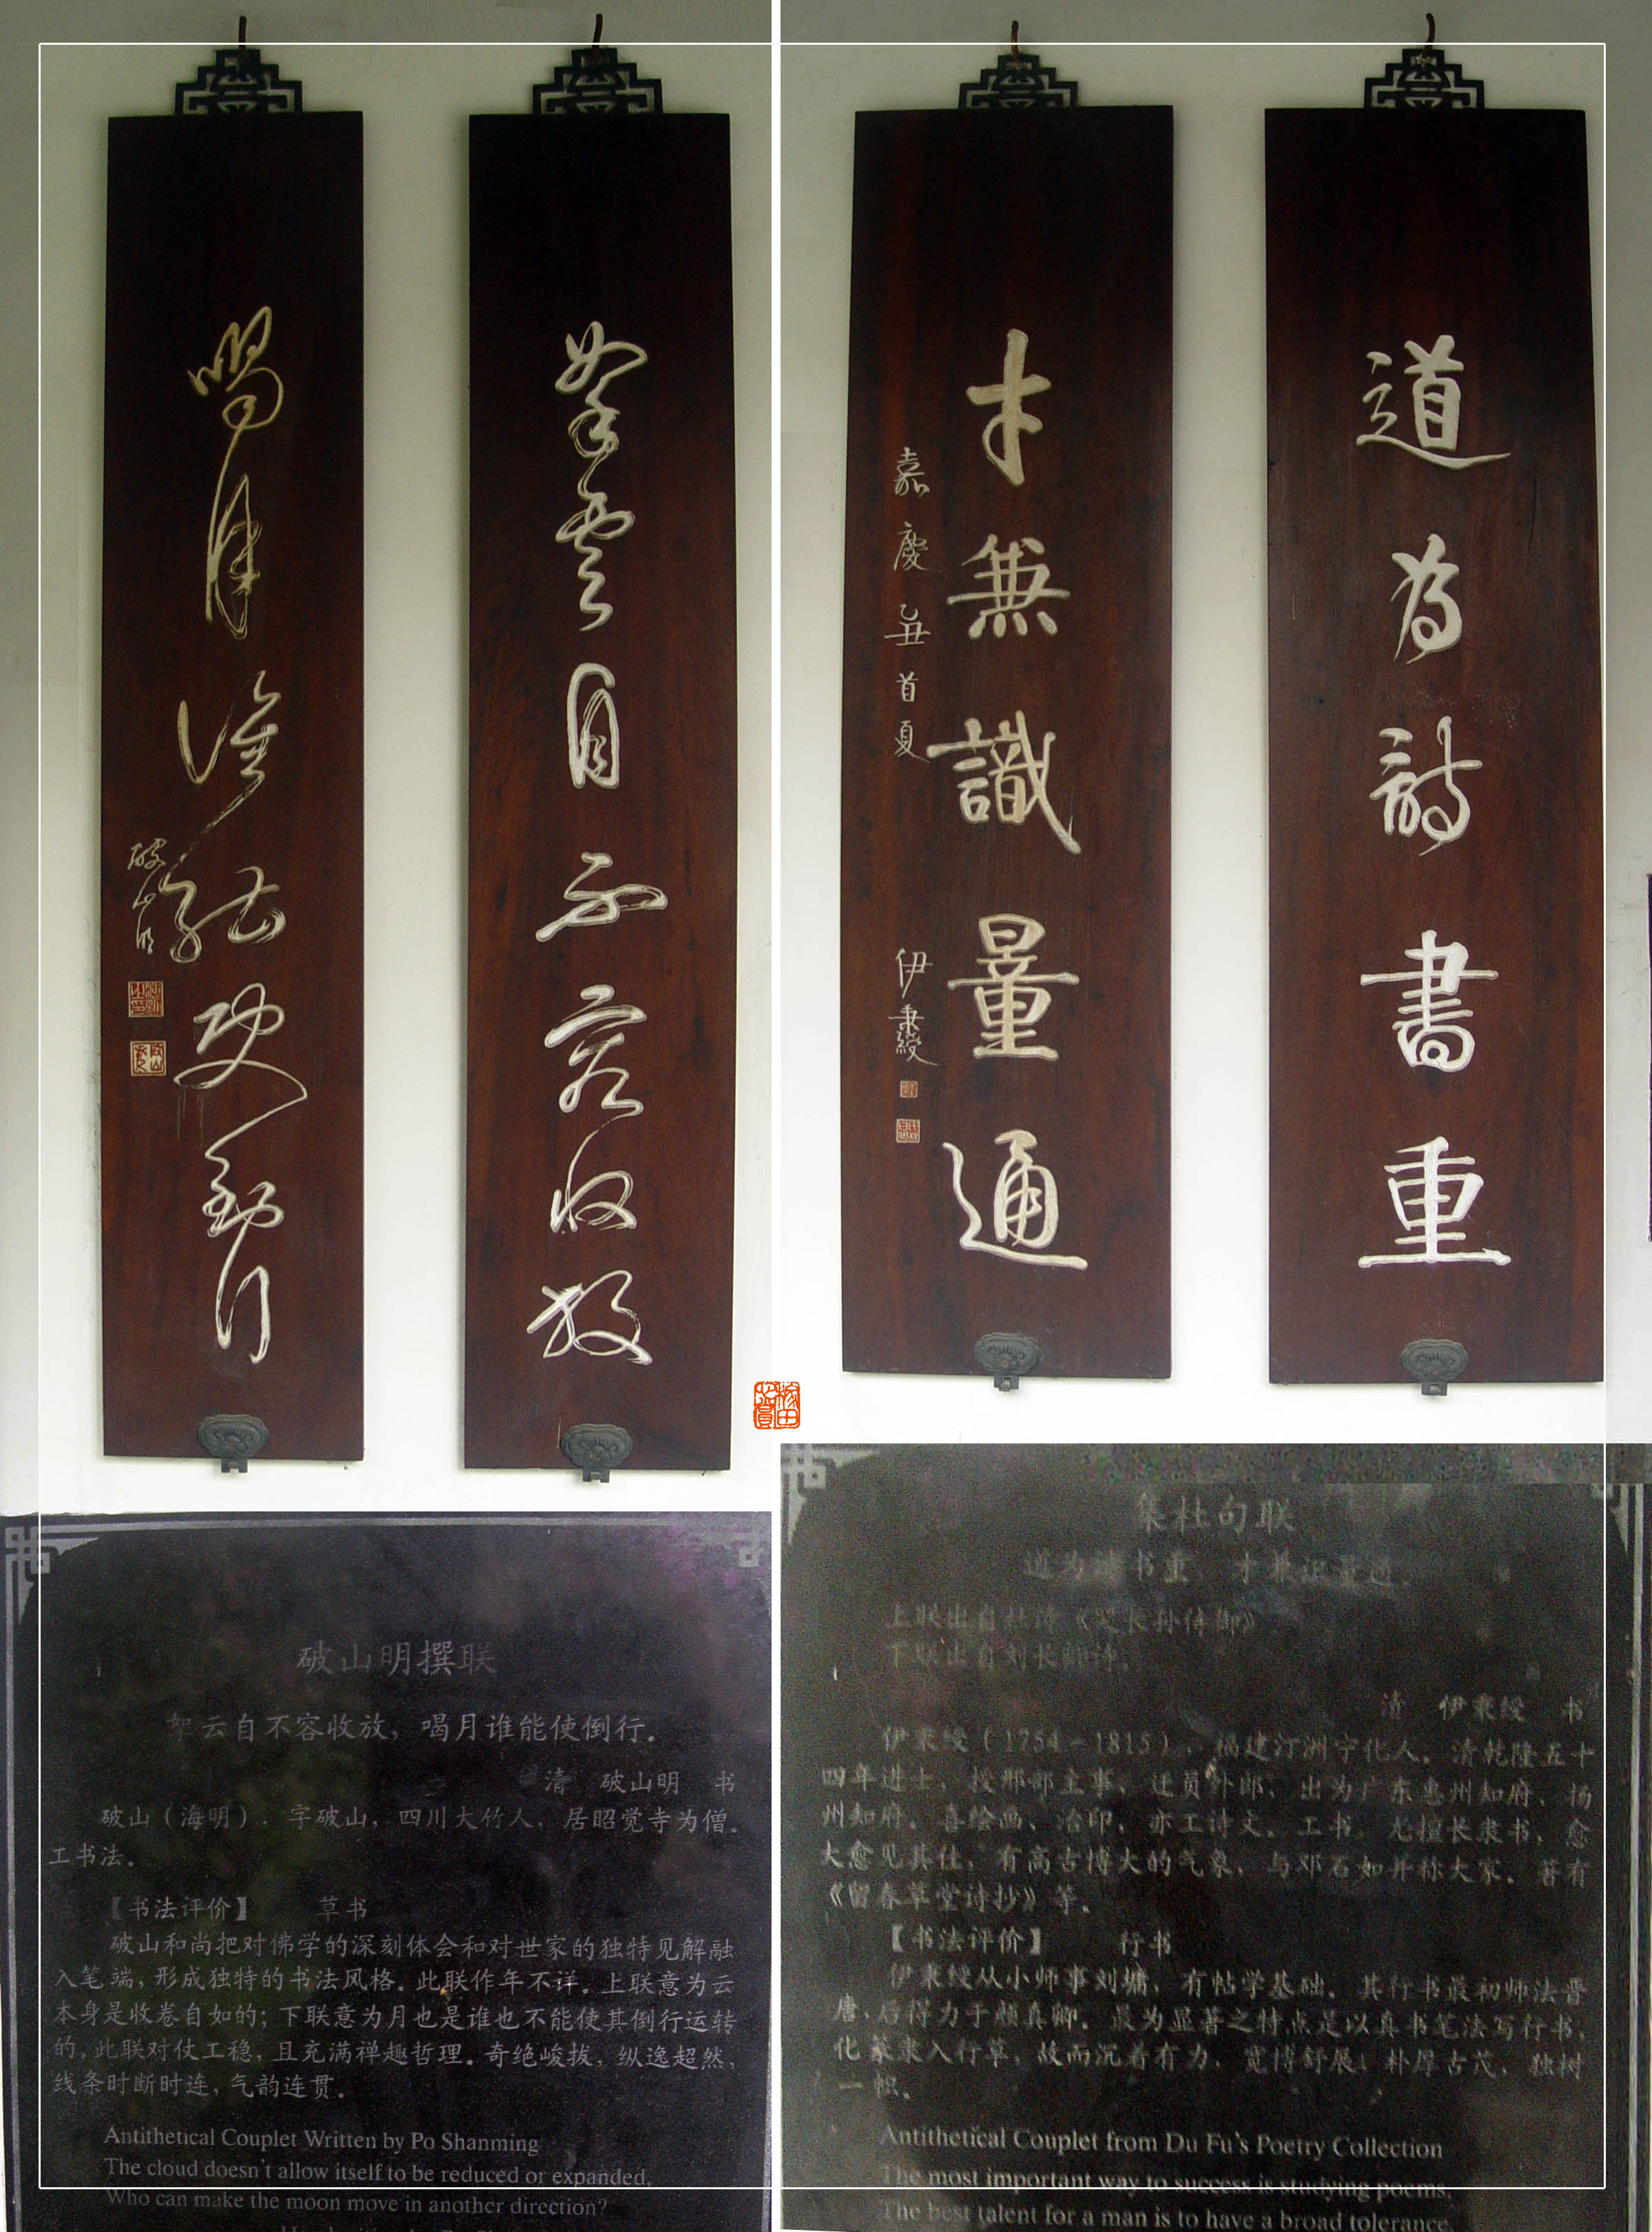 挐雲自不容收放
喝月誰能使倒行
破山明
道為詩書重
才兼識量通
嘉慶乙丑首夏 伊秉綬
破山明撰联
挐云自不容收放，喝月谁能使倒行。
清 破山明 书
破山（海明），字破山，四川大竹人，居昭觉寺为僧。
工书法。
【书法评价】 草书
破山和尚把对佛学的深刻体会和对世家的独特见解融
入笔端，形成独特的书法风格。此联作年不详。上联意为云
本身是收卷自如的；下联意为月也是谁也不能使其倒行运转
的。此联对仗工稳，且充满禅趣哲理。奇绝峻拔，纵逸超然，
线条时断时连，气韵连贯。
Antithetical Couplet Written by Po Shanming
The cloud doesn't allow itself to be reduced or expanded,
Who can make the moon move in another direction?
集杜句联
道为诗书重，才兼识量通。
上联出自杜诗《哭长孙侍御》，
下联出自刘长卿诗。
清 伊秉绶 书
伊秉绶（1754－1815），福建汀洲宁化人。清乾隆五十
四年进士，授刑部主事，迁员外郎，出为广东惠州知府、扬
州知府。喜绘画、治印，亦工诗文。工书，尤擅长隶书，愈
大愈见其佳，有高古博大的气象，与邓石如并称大家。著有
《留春草堂诗抄》等。
【书法评价】 行书
伊秉绶从小师事刘墉，有帖学基础。其行书最初师法晋
唐，后得力于颜真卿。最为显著之特点是以真书笔法写行书，
化篆隶入行草，故而沉着有力，宽博舒展，朴厚古茂，独树
一帜。
Antithetical Couplet from Du Fu's Poetry Collection
The most important way to success is studying poems,
The best talent for a man is to have a broad tolerance.